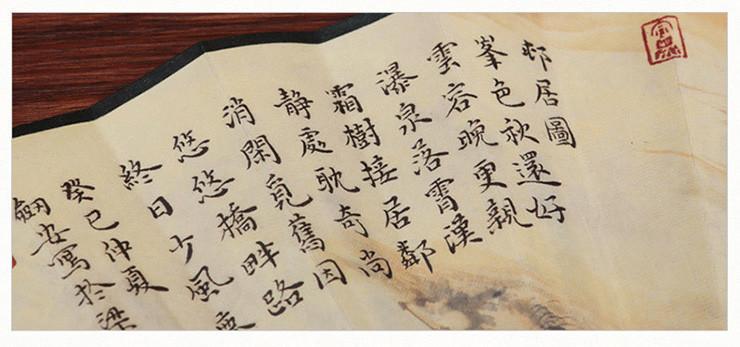 邨居圖
峯色秋還好
雲容晚更親
瀑泉落霄漢
霜樹接居鄰
静處耽奇尚
消閑覓舊因
悠悠橋畔路
終日少風
癸巳仲夏
劍安寫於梁